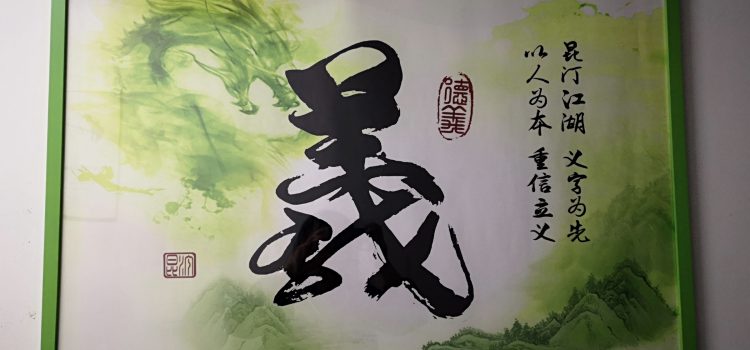 昆汀江湖 义字为先
以人为本 重信立义
德義
義
昆汀